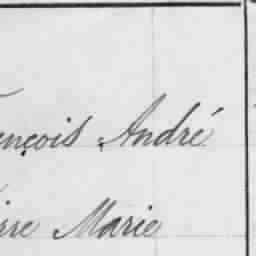 ençois André
irre Marie